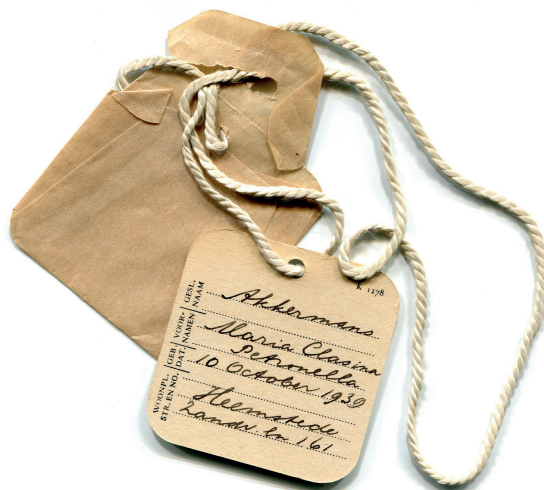 K 1278
GESL. NAAM Akkermans
VOOR- NAMEN Maria Clasina
Petronella
GEB. DAT. 10 October 1939
WOONPL. STR. EN NO. Heemstede
Zandv. ln 161